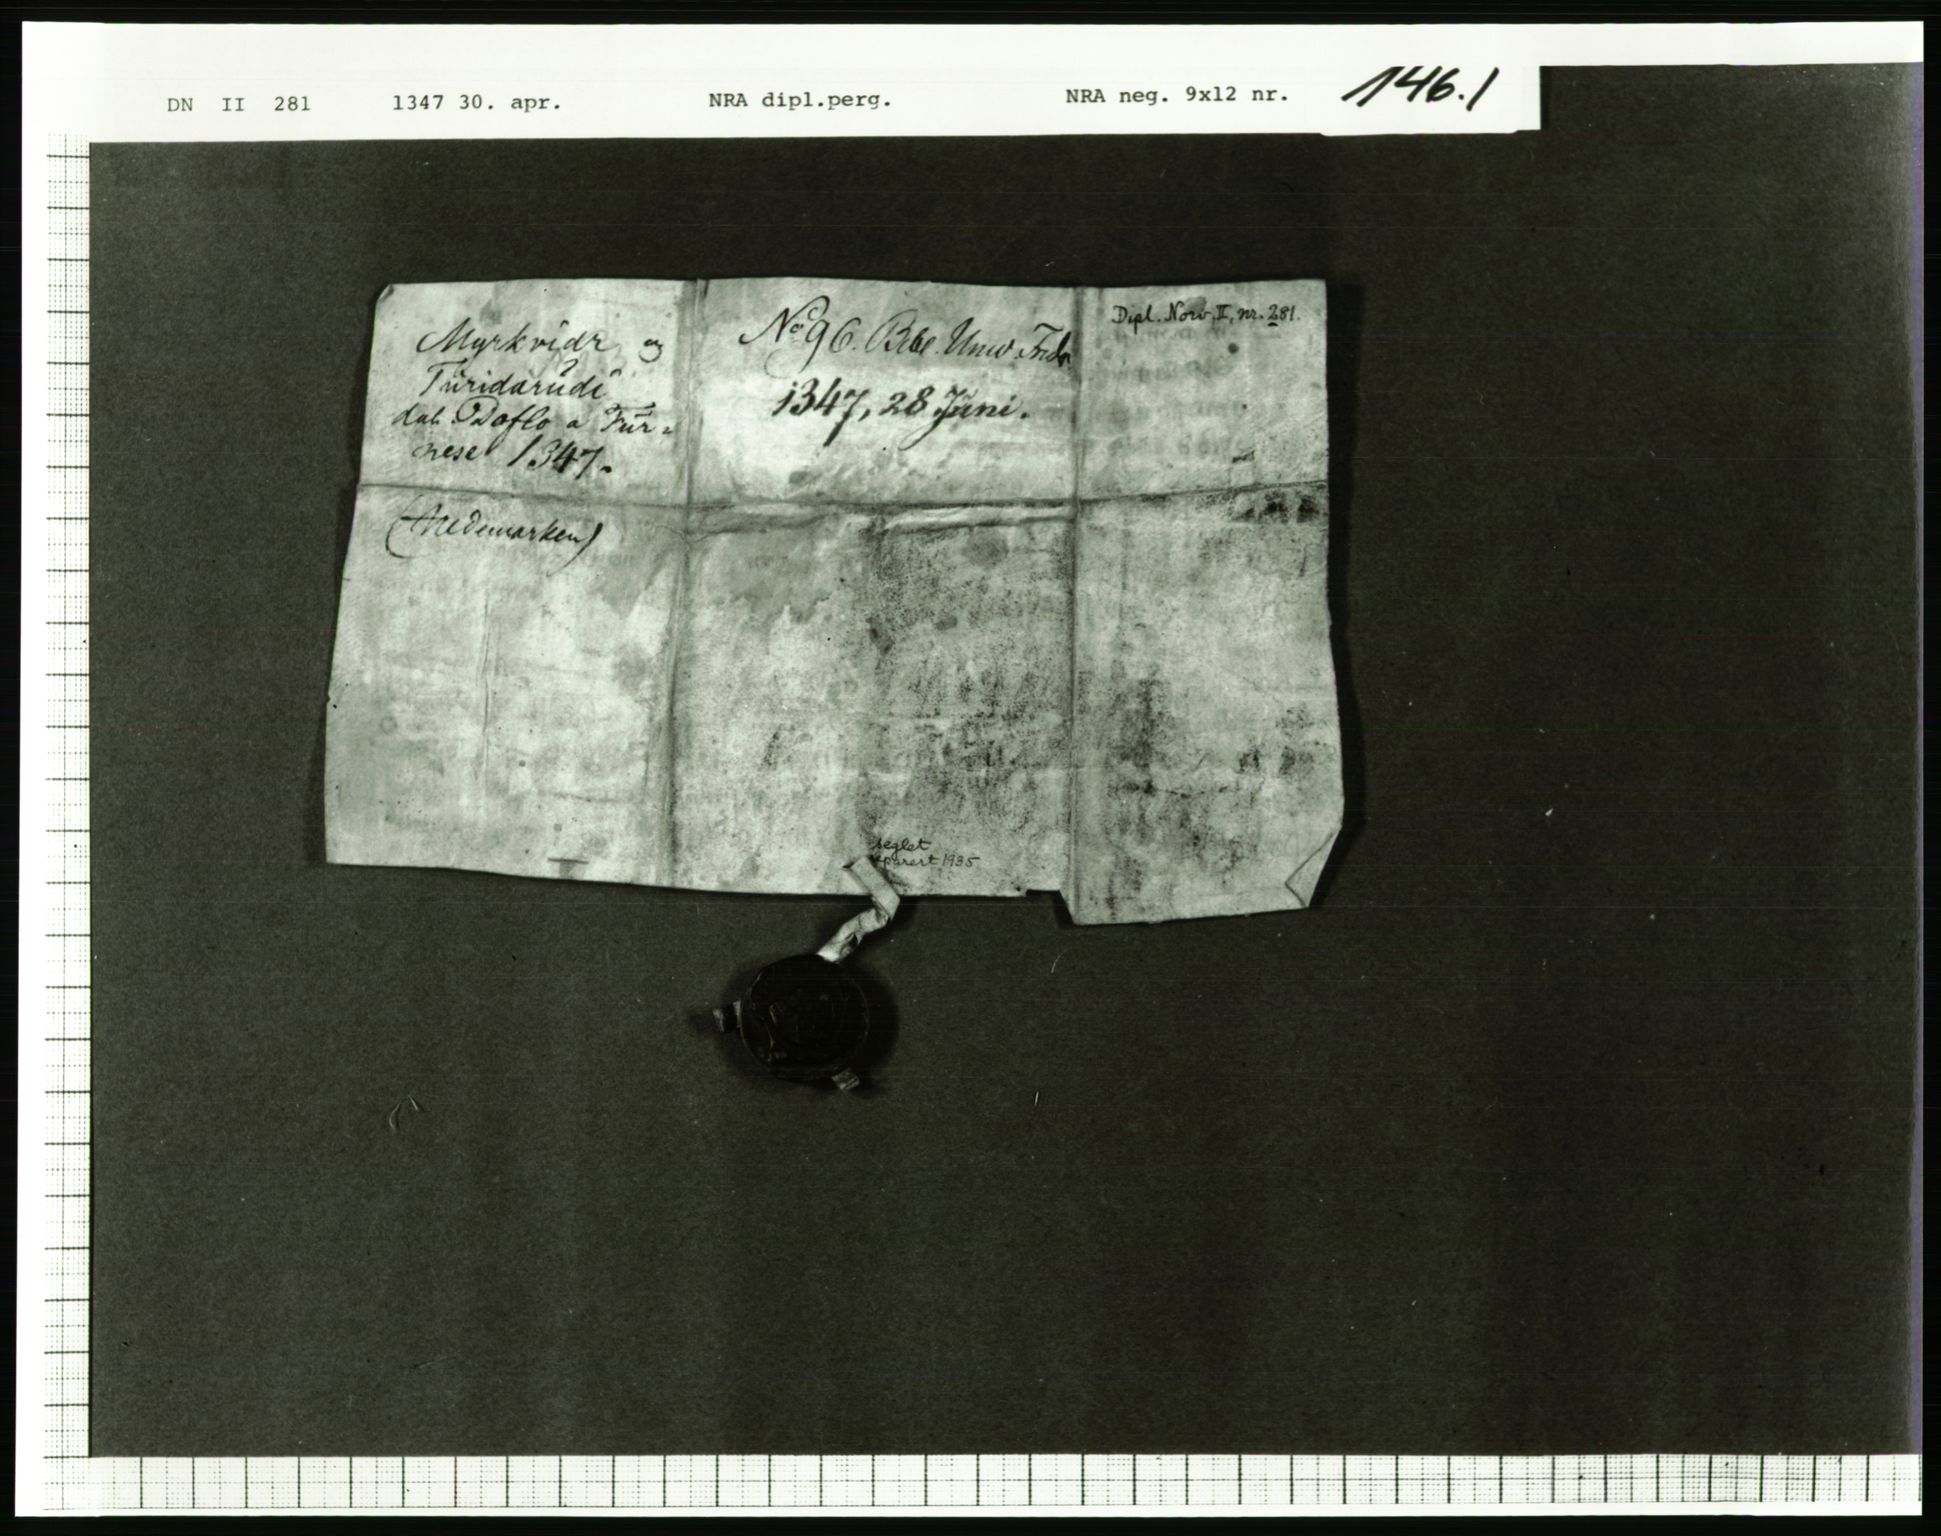 DN II 281 1347 30. apr. NRA dipl.perg. NRA neg. 9x12 nr. 146.1
Myrkvidr og
Turidarudi
dat. Doflo a Fur-
nese 1347.
(Hedemarken)
No 96. Bibl. Univ. Frid.
1347, 28 Juni.
Dipl. Norv. II, nr. 281.
seglet
reparert 1935